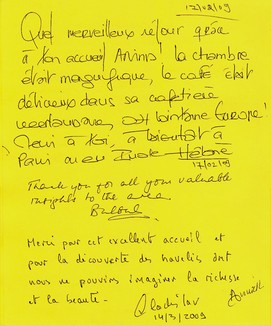 17/02/09
Quel merveilleux séjour grâce
à ton accueil Arvind, la chambre
était magnifique, le café était
délicieux dans sa cafetière
Europe!
Merci à toi, à bientôt à
Paris ou en Inde Hélène
17/02/09
Thank you for all your valuable
insights to the area
Merci par cet excellent accueil et
pour la découverte des havelis dont
nous ne pouvions imaginer la richesse
et la beauté.
Annick
14/3/2009